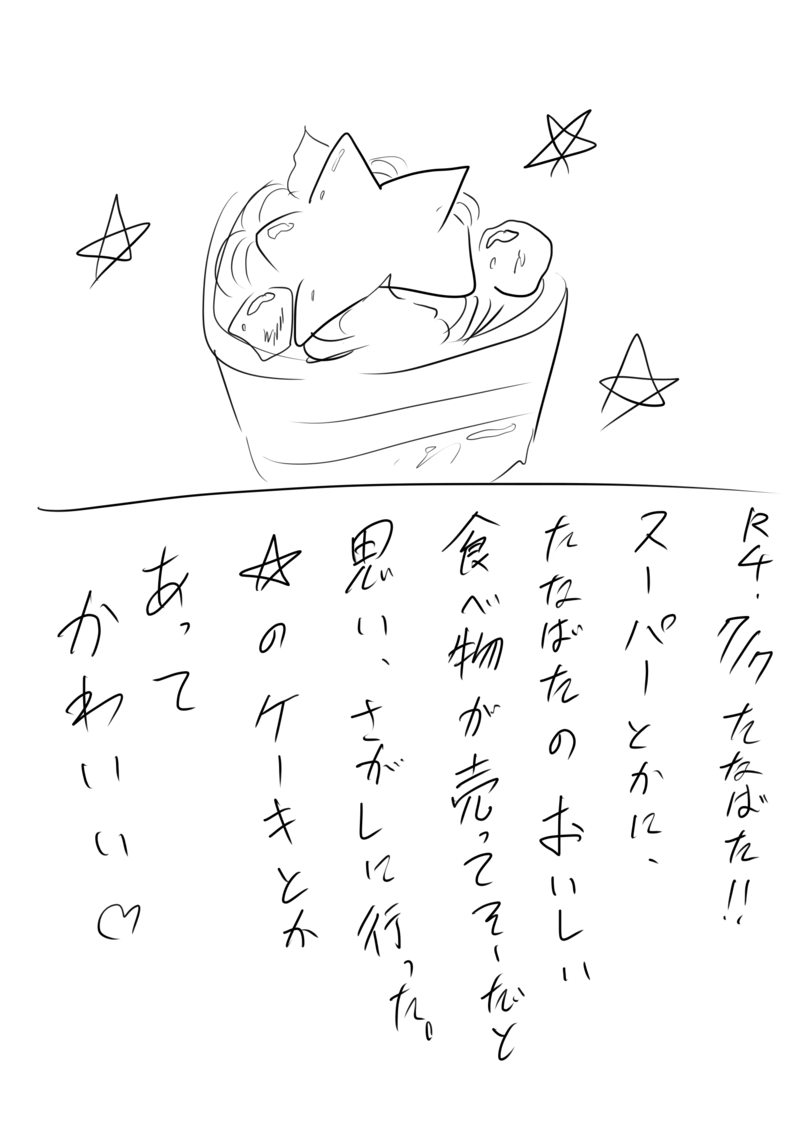 R4.7/7 たなばた!!
スーパーとかに、
たなばたのおいしい
食べ物が売ってそーだと
思い、さがしに行った。
☆のケーキとか
あって
かわいい♡